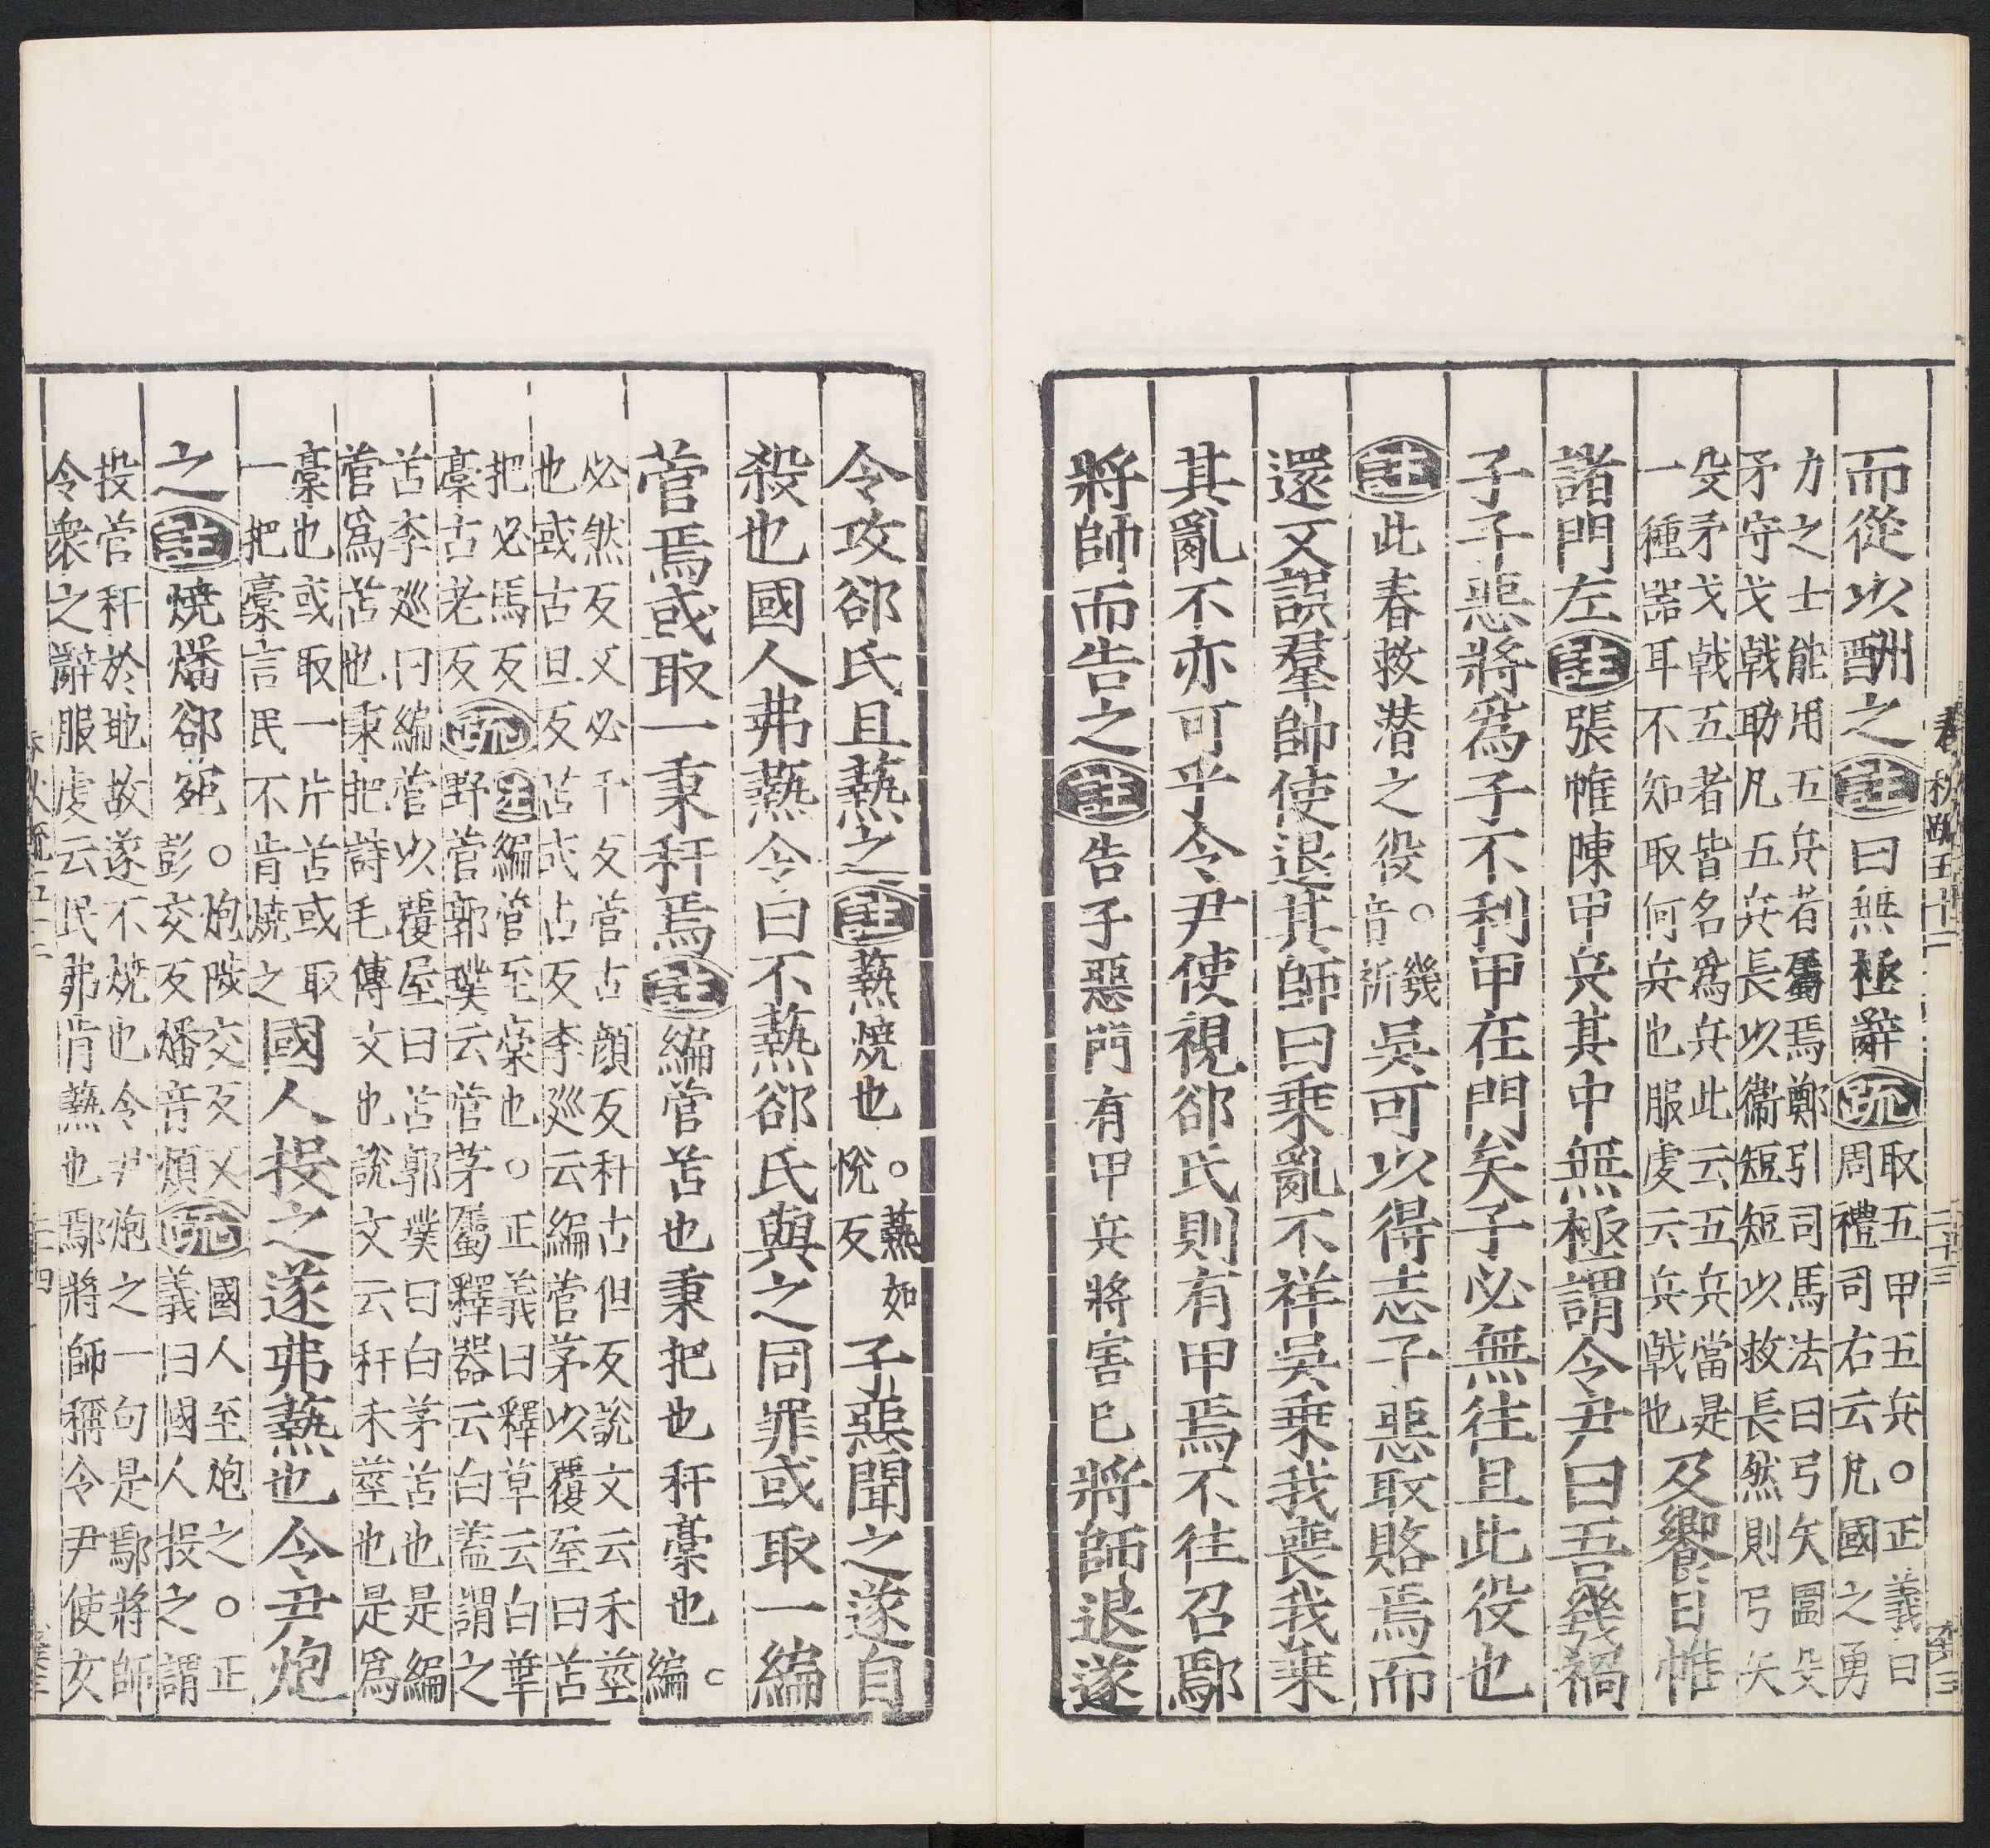 而從以酬之註曰無極辭疏取五甲五兵。正義曰周禮司右云凡國之勇
力之士能用五兵者屬焉鄭引司馬法曰弓矢圍殳矛守戈戟助凡五兵長以衞短短以救長然則弓矢
殳矛戈戟五者皆名爲兵此云五兵當是一種器耳不知取何兵也服虔云兵戟也及饗日帷
諸門左註張帷陳甲兵其中無極謂令尹曰吾幾禍
子子惡將爲子不利甲在門矣子必無往且此役也
註此春救潜之役。幾音祈吳可以得志子惡取賂焉而
還又誤羣帥使退其師曰乗亂不祥吳乗我喪我乗
其亂不亦可乎令尹使視郤氏則有甲焉不往召鄢
將師而告之註告子惡門有甲兵將害已將師退遂
令攻郤氏且爇之註爇燒也。爇如悅反子惡聞之遂自
殺也國人弗爇令曰不爇郤氏與之同罪或取一編
菅焉或取一秉秆焉註編菅苫也秉把也秆稾也。編
必然反又必千反菅古顔反秆古但反說文云禾莖也或古旦反苫式占反李廵云編菅茅以覆屋曰苫
把必馬反稾古老反疏註編菅至稾也。正義曰釋草云白華野菅郭璞云菅茅屬釋器云白蓋謂之
苫李廵曰編菅以覆屋曰苫郭璞曰白茅苫也是編菅爲苫也秉把詩毛傳文也說文云秆禾莖也是爲
稾也或取一片苫或取一把稾言民不肯燒之國人投之遂弗爇也令尹炮
之註燒燔郤宛。炮陟交反又彭交反燔音煩疏國人至炮之。正義曰國人投之謂
投菅秆於地故遂不燒也令尹炮之一句是鄢將師令衆之辭服虔云民弗肯爇也鄢將師稱令尹使女